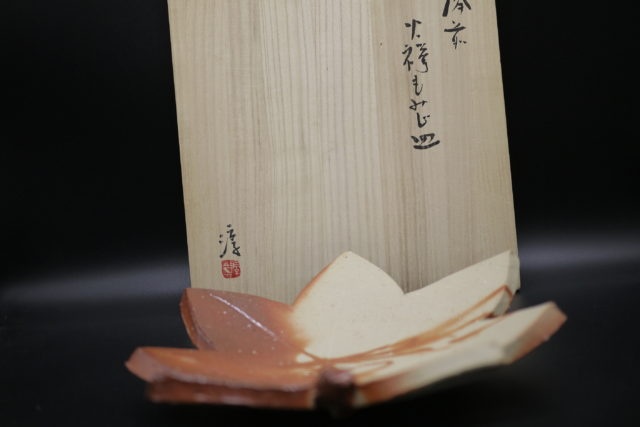 備前
火襷もみじ皿
淳